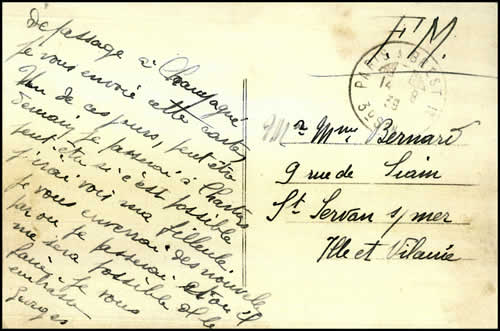 De passage à Champagné
je vous envoie cette carte
Un de ces jours, peut-être
demain, je passerai à Chartres
peut être si c'est possible
j'irai voir ma filleule
je vous enverrai des nouvelles
par où je passerai si on il
me sera possible de le
faire. je vous
embrasse
Georges
F.M.
PARIS A BREST
Mr Mme Bernard
9 rue de Siam
St Servan s/mer
Ille et Vilaine